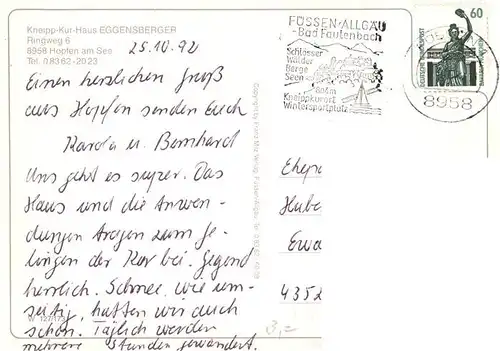 Kneipp-Kur-Haus EGGENSBERGER
Ringweg 6
8958 Hopfen am See
Tel. 0 83 62 - 20 23
25.10.92
Einen herzlichen Gruß
aus Hopfen senden Euch
Karola u. Bernhard
Uns geht es super. Das
Haus und die Anwen-
dungen tragen zum Ge-
lingen der Kur bei. Gegend
herrlich. Schnee, wie um-
seitig, hatten wir auch
schon. Täglich werden
mehrere Stunden gewandert.
W 127/173
FÜSSEN/ALLGÄU
-Bad Faulenbach
Schlösser
Wälder
Berge
Seen
804m
Kneippkurort
Wintersportplatz
60
DEUTSCHE BUNDESPOST
8958
Ehepa
Hube
Ewa
4352
3,=